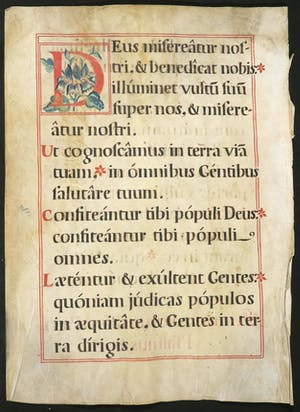 Deus misereâtur nos-
tri, & benedicat nobis:*
illuminet vultũ suũ
super nos, & misere-
âtur nostri.
Ut cognoscâmus in terra viã
tuam,* in ómnibus Géntibus
salutâre tuum.
Confiteántur tibi pópuli Deus:*
confiteántur tibi pópuli
omnes.
Læténtur & exúltent Gentes:*
quóniam júdicas pópulos
in æquitâte, & Gentes in ter-
ra dírigis.